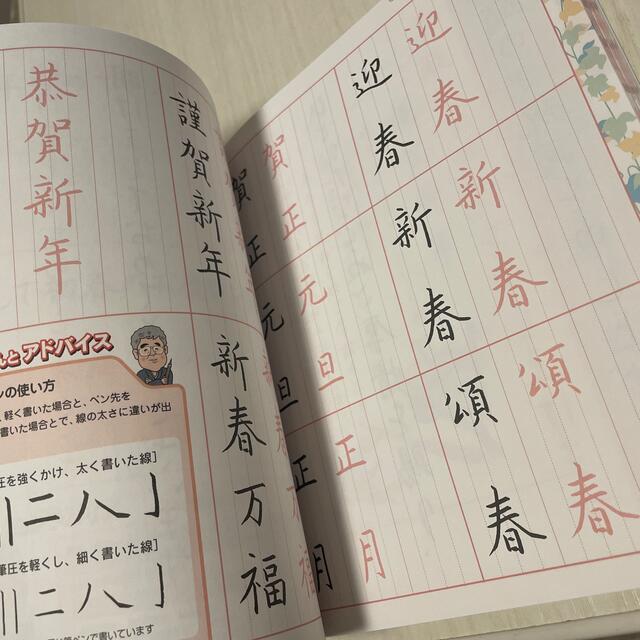 迎春
迎春
新春
新春
頌春
頌春
賀正
賀正
元旦
元旦
正月
正月
謹賀新年
新春万福
恭賀新年
とアドバイス
ンの使い方
軽く書いた場合と、ペン先を
書いた場合とで、線の太さに違いが出
圧を強くかけ、太く書いた線］
二八亅
筆圧を軽くし、細く書いた線］
二八亅
ペンで書いています